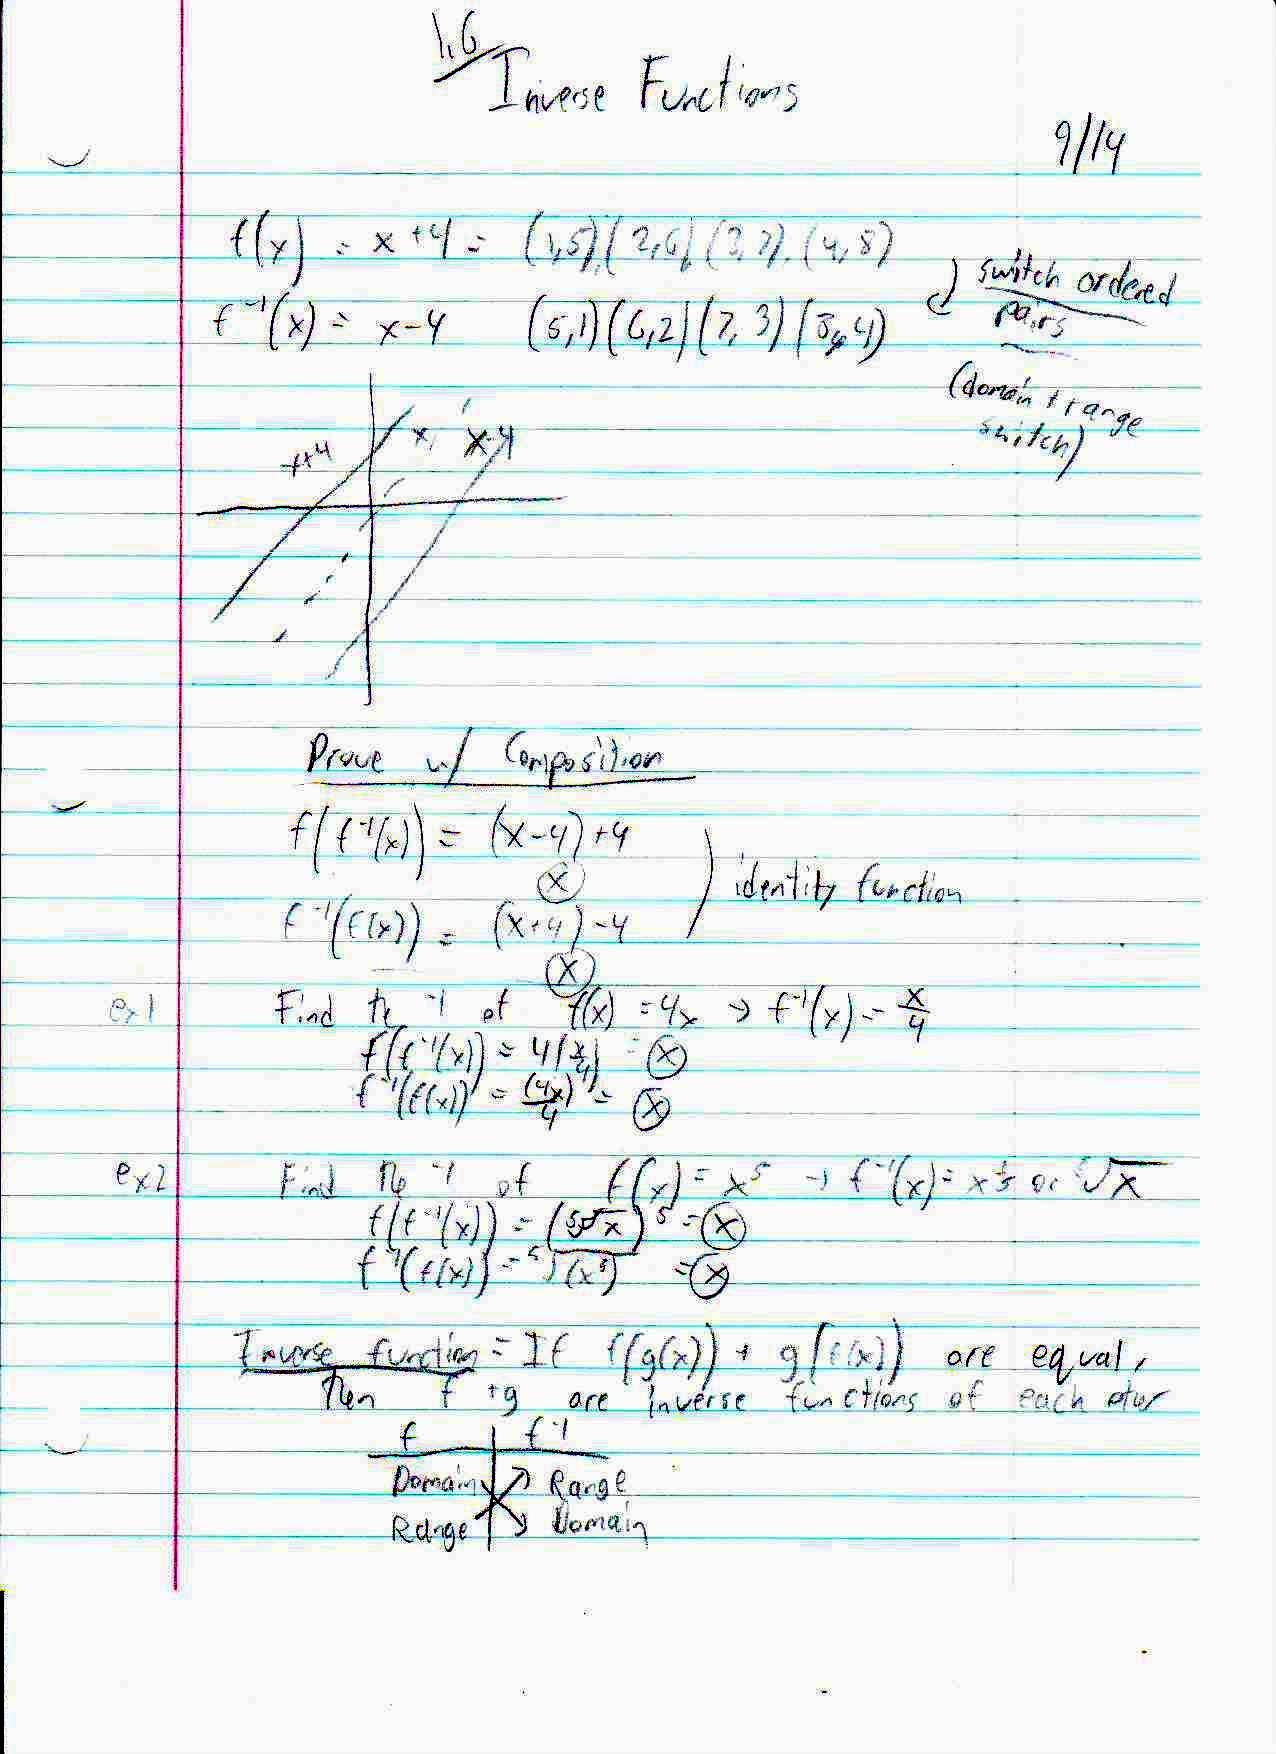 1.6
Inverse Functions
9/14
f(x) = x+4 = (1,5),(2,6),(3,7),(4,8)
f⁻¹(x) = x-4 (5,1)(6,2)(7,3)(8,4)
switch ordered
pairs
(domain + range
switch)
x+4 x x-4
Prove w/ Composition
f(f⁻¹(x)) = (x-4)+4
x
identity function
f⁻¹(f(x)) = (x+4)-4
x
ex1 Find the ⁻¹ of f(x) = 4x → f⁻¹(x) = x/4
f(f⁻¹(x)) = 4(x/4) = x
f⁻¹(f(x)) = (4x)/4 = x
ex2 Find the ⁻¹ of f(x) = x⁵ → f⁻¹(x) = x^1/5 or ⁵√x
f(f⁻¹(x)) = (⁵√x)⁵ = x
f⁻¹(f(x)) = ⁵√(x⁵) = x
Inverse function = If f(g(x)) + g(f(x)) are equal,
then f + g are inverse functions of each other
f f⁻¹
Domain Range
Range Domain